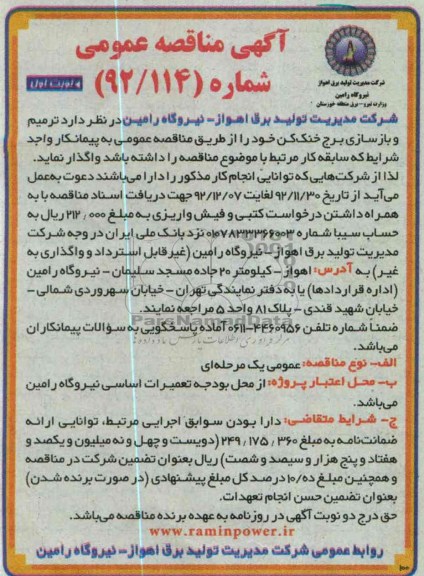 آگهی مناقصه عمومی
شماره (۹۲/۱۱۴)
نوبت اول
شرکت مدیریت تولید برق اهواز
نیروگاه رامین
وزارت نیرو - برق منطقه خوزستان
شرکت مدیریت تولید برق اهواز- نیروگاه رامین در نظر دارد ترمیم
و بازسازی برج خنک‌کن خود را از طریق مناقصه عمومی به پیمانکار واجد
شرایط که سابقه کار مرتبط با موضوع مناقصه را داشته باشد واگذار نماید.
لذا از شرکت‌هایی که توانایی انجام کار مذکور را دارا می‌باشند دعوت به‌عمل
می‌آید از تاریخ ۹۲/۱۱/۳۰ لغایت ۹۲/۱۲/۰۷ جهت دریافت اسناد مناقصه با به
همراه داشتن درخواست کتبی و فیش واریزی به مبلغ ۲۱۲/۰۰۰ ریال به
حساب سیبا شماره ۰۱۰۷۸۳۳۳۶۶۰۰۳ نزد بانک ملی ایران در وجه شرکت
مدیریت تولید برق اهواز- نیروگاه رامین (غیر قابل استرداد و واگذاری به
غیر) به آدرس: اهواز- کیلومتر ۲۰ جاده مسجد سلیمان - نیروگاه رامین
(اداره قراردادها) یا به دفتر نمایندگی تهران - خیابان سهروردی شمالی -
خیابان شهید قندی - پلاک ۸۱ واحد ۵ مراجعه نمایند.
ضمناً شماره تلفن ۴۴۶۰۹۵۶-۰۶۱۱ آماده پاسخگویی به سؤالات پیمانکاران
می‌باشد.
الف- نوع مناقصه: عمومی یک مرحله‌ای
ب- محل اعتبار پروژه: از محل بودجه تعمیرات اساسی نیروگاه رامین
می‌باشد.
ج- شرایط متقاضی: دارا بودن سوابق اجرایی مرتبط، توانایی ارائه
ضمانت‌نامه به مبلغ ۲۴۹/۱۷۵/۳۶۰ (دویست و چهل و نه میلیون و یکصد و
هفتاد و پنج هزار و سیصد و شصت) ریال بعنوان تضمین شرکت در مناقصه
و همچنین مبلغ ۱۰/۵ درصد کل مبلغ پیشنهادی (در صورت برنده شدن)
بعنوان تضمین حسن انجام تعهدات.
حق درج دو نوبت آگهی در روزنامه به عهده برنده مناقصه می‌باشد.
www.raminpower.ir
روابط عمومی شرکت مدیریت تولید برق اهواز- نیروگاه رامین
ParsNamadData